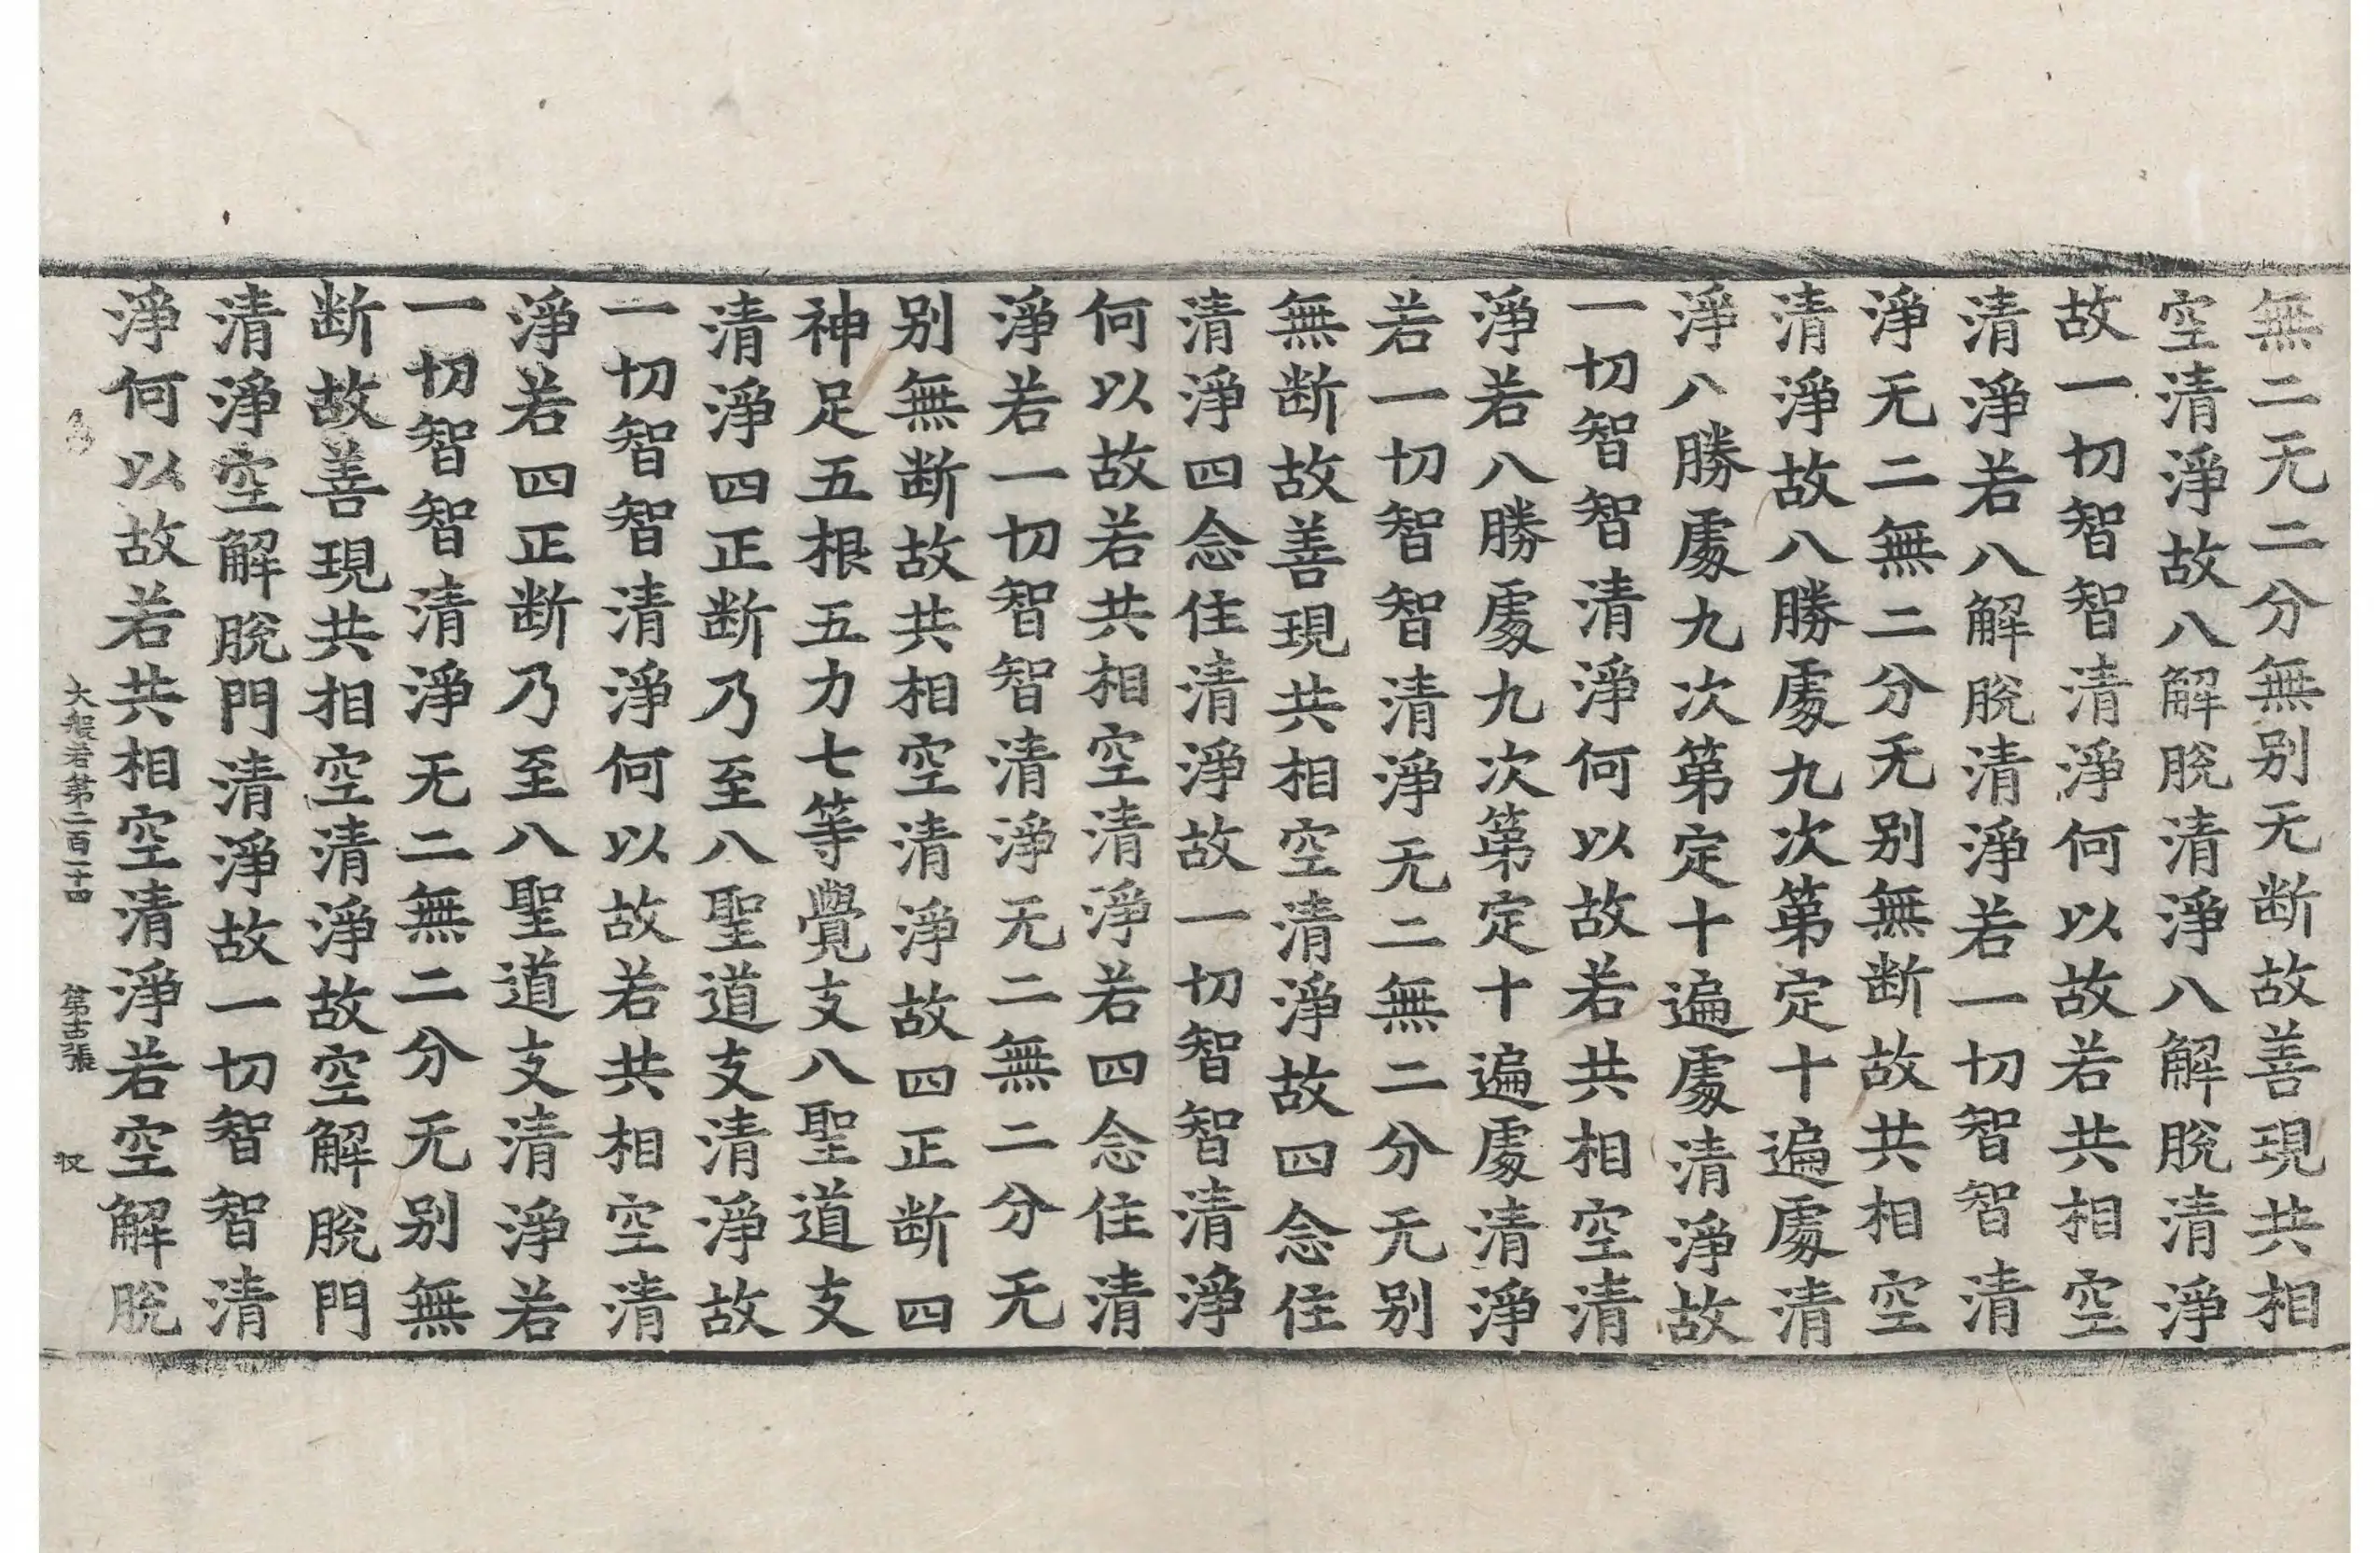 無二无二分無别无断故善現共相
空清淨故八解脫清淨八解脫清淨
故一切智智清淨何以故若共相空
清淨若八解脫清淨若一切智智清
淨无二無二分无别無断故共相空
清淨故八勝䖏九次第定十遍䖏清
淨八勝䖏九次第定十遍䖏清淨故
一切智智清淨何以故若共相空清
淨若八勝䖏九次第定十遍䖏清淨
若一切智智清淨无二無二分无别
無断故善現共相空清淨故四念住
清淨四念住清淨故一切智智清淨
何以故若共相空清淨若四念住清
淨若一切智智清淨无二無二分无
别無断故共相空清淨故四正断四
神足五根五力七等覺支八聖道支
清淨四正断乃至八聖道支清淨故
一切智智清淨何以故若共相空清
淨若四正断乃至八聖道支清淨若
一切智智清淨无二無二分无别無
断故善現共相空清淨故空解脫門
清淨空解脫門清淨故一切智智清
淨何以故若共相空清淨若空解脫
大般若第二百二十四 第十吉張